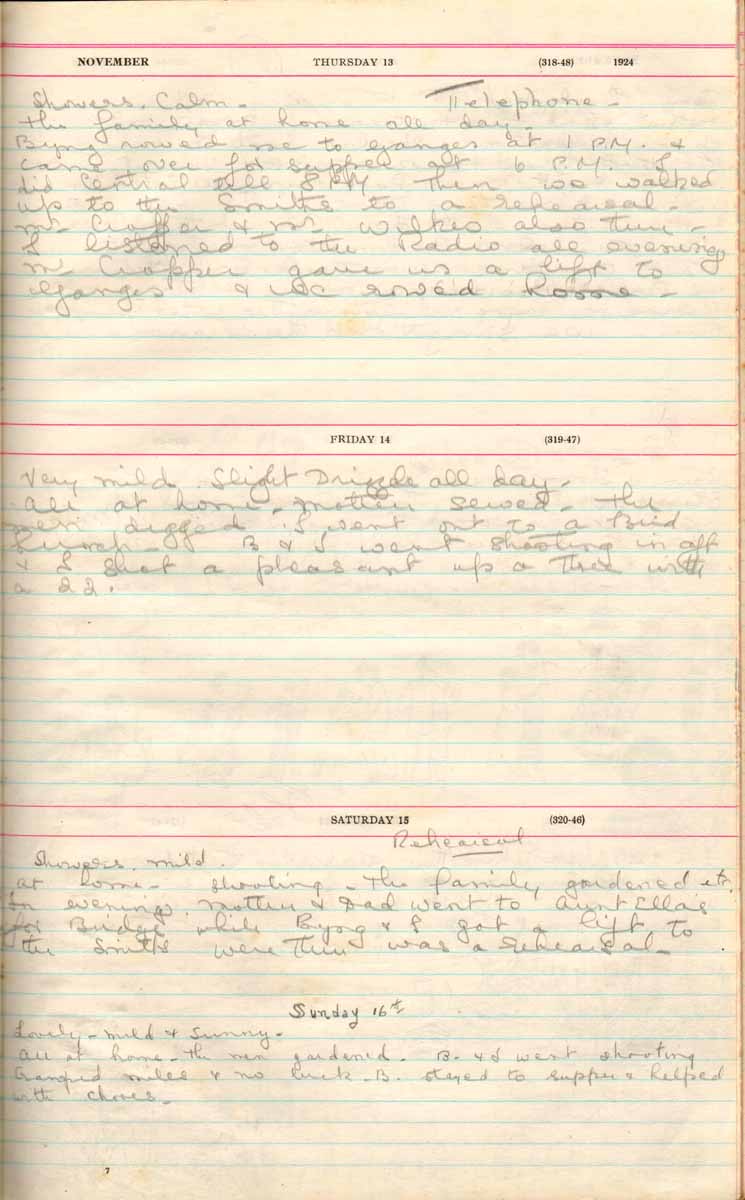 NOVEMBER THURSDAY 13 (318-48) 1924
Showers. Calm - Telephone -
The family at home all day -
Byng rowed me to Ganges at 1 P.M. &
came over for supper at 6 P.M. I
did Central till 8 P.M. Then we walked
up to the Smiths to a rehearsal -
Mr Cropper & Mr Wilkes also there -
I listened to the Radio all evening
Mr Cropper gave us a lift to
Ganges & we rowed home -
FRIDAY 14 (319-47)
Very mild. Slight Drizzle all day -
All at home - Mother sewed - The
men digged. I went out to a Bird
Lunch - B & I went shooting in aft
& I shot a pleasant up a Tree with
a 22.
SATURDAY 15 (320-46)
Rehearsal
Showers. mild.
at home - shooting - The family gardened etc.
In evening. Mother & Dad went to Aunt Ella's
for Bridge while Byng & I got a lift to
the Smiths were there was a rehearsal -
Sunday 16th
Lovely - mild & Sunny -
All at home - the men gardened. B. & I went shooting
tramped miles & no luck - B. stayed to supper & helped
with chores -
7